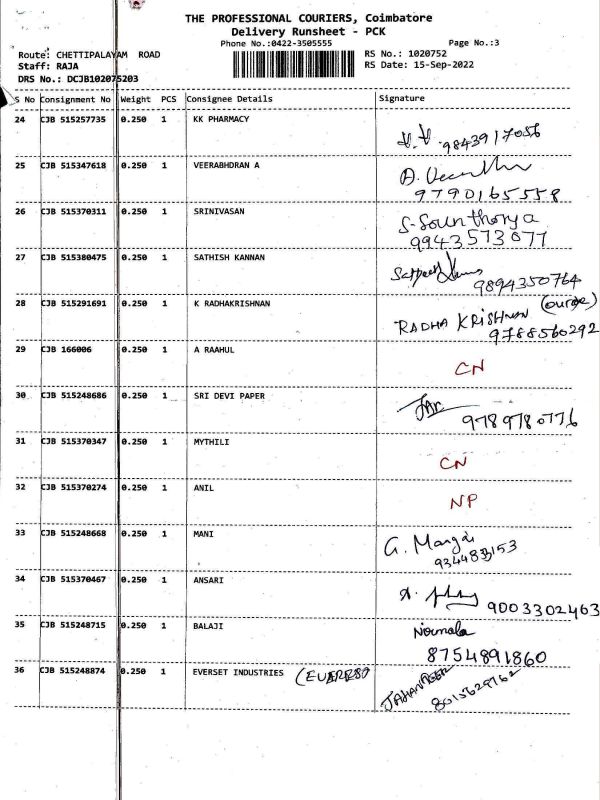 THE PROFESSIONAL COURIERS, Coimbatore
Delivery Runsheet - PCK
Phone No.:0422-3505555 Page No.:3
Route: CHETTIPALAYAM ROAD RS No.: 1020752
Staff: RAJA RS Date: 15-Sep-2022
DRS No.: DCJB102075203
S No Consignment No Weight PCS Consignee Details Signature
24 CJB 515257735 0.250 1 KK PHARMACY
9843917056
25 CJB 515347618 0.250 1 VEERABHDRAN A
9790165558
26 CJB 515370311 0.250 1 SRINIVASAN S-Sounthorya
9943573077
27 CJB 515380475 0.250 1 SATHISH KANNAN
9894350764
28 CJB 515291691 0.250 1 K RADHAKRISHNAN
RADHA KRISHNAN
9788560292
29 CJB 166006 0.250 1 A RAAHUL
CN
30 CJB 515248686 0.250 1 SRI DEVI PAPER
9789780776
31 CJB 515370347 0.250 1 MYTHILI
CN
32 CJB 515370274 0.250 1 ANIL
NP
33 CJB 515248668 0.250 1 MANI
34 CJB 515370467 0.250 1 ANSARI
9003302463
35 CJB 515248715 0.250 1 BALAJI
8754891860
36 CJB 515248874 0.250 1 EVERSET INDUSTRIES
8015629762